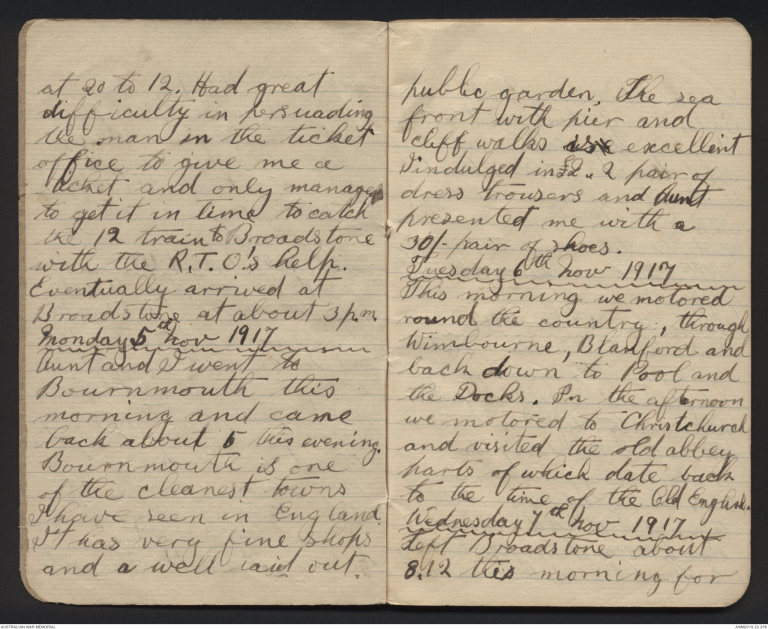 at 20 to 12. Had great
difficulty in persuading
the man in the ticket
office to give me a
ticket and only managed
to get it in time to catch
the 12 train to Broadstone
with the R.T.O's help.
Eventually arrived at
Broadstone at about 3 p.m.
Monday 5th Nov 1917
Aunt and I went to
Bournmouth this
morning and came
back about 5 this evening.
Bournmouth is one
of the cleanest towns
I have seen in England.
It has very fine shops
and a well laid out
public garden. The sea
front with pier and
cliff walks is excellent
I indulged in £2.. 2 pair of
dress trousers and Aunt
presented me with a
30/- pair of shoes.
Tuesday 6th Nov 1917
This morning we motored
round the country, through
Wimbourne, Blanford and
back down to Pool and
the Docks. In the afternoon
we motored to Christchurch
and visited the old abbey
parts of which date back
to the time of the Old English.
Wednesday 7th Nov 1917
Left Broadstone about
8.12 this morning for
AUSTRALIAN WAR MEMORIAL